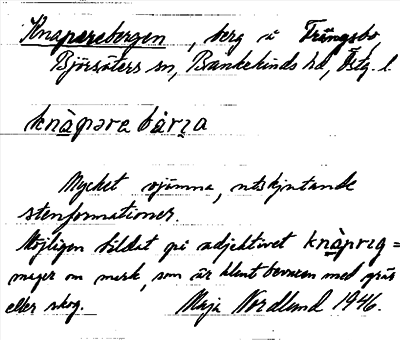 Knaperebergen, berg å Trängsbo,
Björsäters sn, Bankekinds hd, Östg. l.
knàpəra bàrɪa
Mycket ojämna, utskjutande
stenformationer.
Möjligen bildat på adjektivet knàprɪg =
mager om mark, som är klent bevuxen med gräs
eller skog. Maja Nordlund 1946.